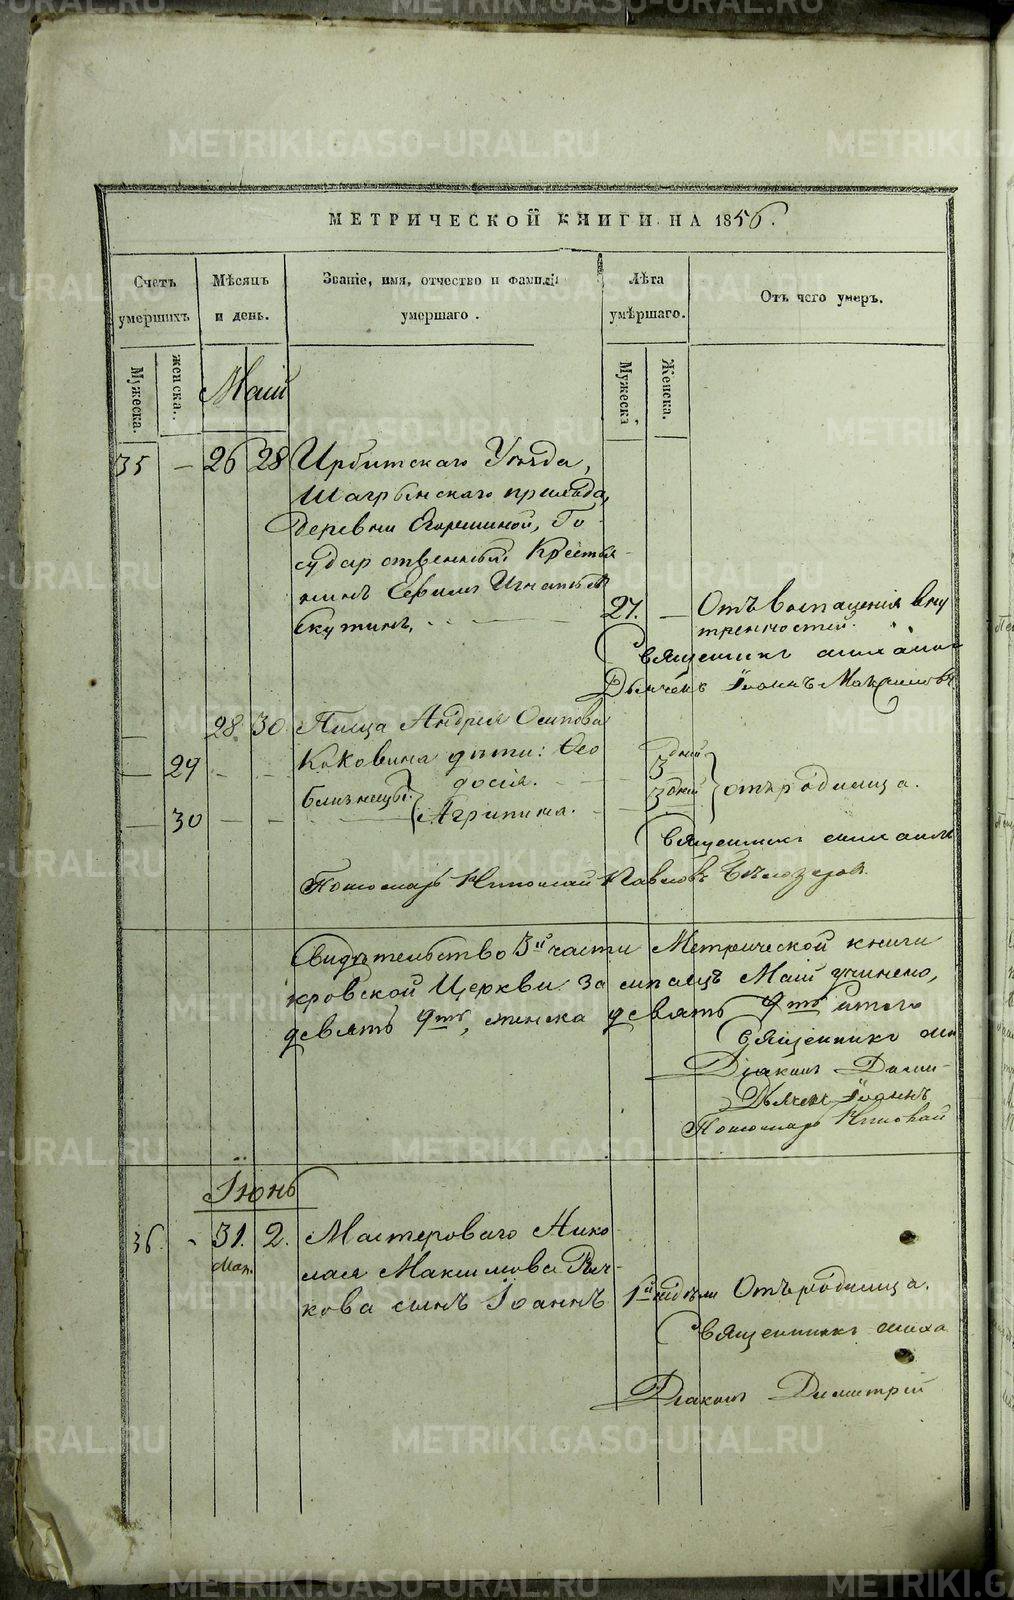 METRIKI.GASO-URAL.RU
МЕТРИЧЕСКОЙ КНИГИ НА 1856.
Счетъ умершихъ
Мѣсяцъ и день.
Званіе, имя, отчество и фамилія умершаго.
Лѣта умершаго.
Отъ чего умеръ.
Мужеска.
женска.
Мужеска
Женска.
Маій
35 — 26 28 Ирбитскаго Уѣзда,
деревни Егоршиной, Го-
сударственный Крестья-
нинъ Ефимъ Игнатьевъ
Скутинъ, 27. — Отъ воспаленія вну
тренностей.
Священникъ
Дьячекъ Іоаннъ Максимовъ
28. 30. Андрея Осипова
29 Коковина дѣти: Ѳео 3 дней
Близнецы: досія. 3 дней отъ родимца.
30 Агрипина.
Священникъ
Пономарь Николай Павловъ Бѣлозеровъ.
Свидѣтельство 3й части Метрической книги
кровской Церкви за мѣсяцъ Маій учинено,
девять 9ть, женска девять 9ть итого
Священникъ
Діаконъ Дими-
Дьячекъ Іоаннъ
Пономарь Николай
Іюнь
36. - 31. 2. Мастероваго Нико
Мая. лая Максимова
кова сынъ Іоаннъ 1й недѣли Отъ родимца.
Священникъ Миха
Діаконъ Димитрій